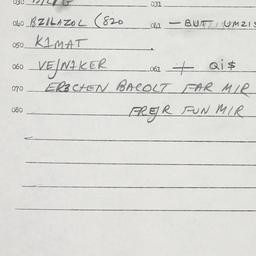 030 031
040 BZILAZOL (820 041 - BUTT, UMZIS
050 K1MAT
060 VEJNAKER 061 + Qi$
070 ERBCHEN BACOLT FAR MIR
080 FREJR FUN MIR